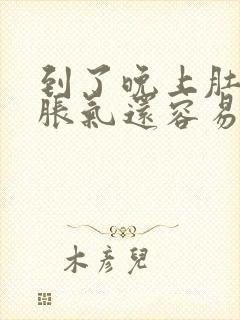 到了晚上肚
脹氣還容易
木彥兒